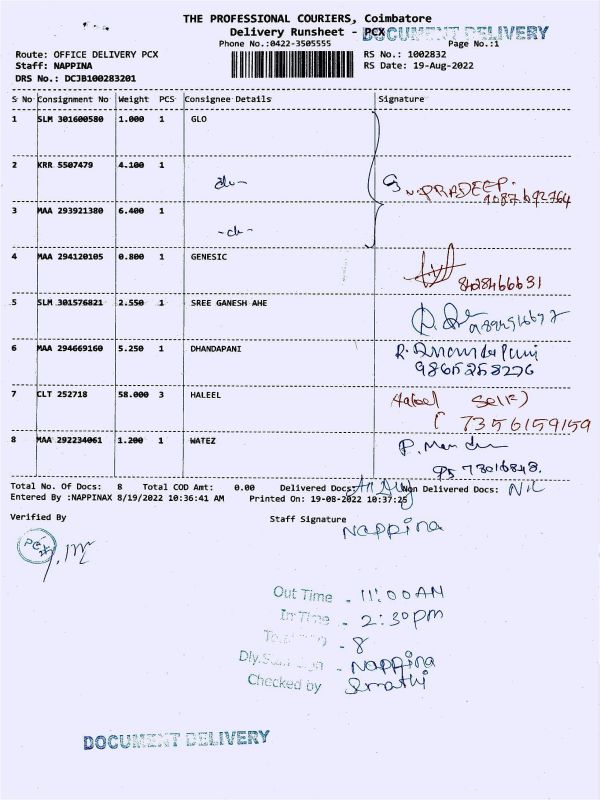 THE PROFESSIONAL COURIERS, Coimbatore
Delivery Runsheet - PCX DOCUMENT DELIVERY
Phone No.:0422-3505555 Page No.:1
Route: OFFICE DELIVERY PCX RS No.: 1002832
Staff: NAPPINA RS Date: 19-Aug-2022
DRS No.: DCJB100283201
S No Consignment No Weight PCS Consignee Details Signature
1 SLM 301600580 1.000 1 GLO
2 KRR 5507479 4.100 1 -do-
G N. PRADEEP.
9087692764
3 MAA 293921380 6.400 1 -do-
4 MAA 294120105 0.800 1 GENESIC
8428466631
5 SLM 301576821 2.550 1 SREE GANESH AHE
6 MAA 294669160 5.250 1 DHANDAPANI
9865258276
7 CLT 252718 58.000 3 HALEEL Haleel Self)
( 7356159159
8 MAA 292234061 1.200 1 WATEZ
9573016848.
Total No. Of Docs: 8 Total COD Amt: 0.00 Delivered Docs: Non Delivered Docs: NIL
Entered By :NAPPINAX 8/19/2022 10:36:41 AM Printed On: 19-08-2022 10:37:25
Verified By Staff Signature
Nappina
PCX
Out Time - 11:00 AM
In Time - 2:30 pm
- 8
- Nappina
Checked by
DOCUMENT DELIVERY